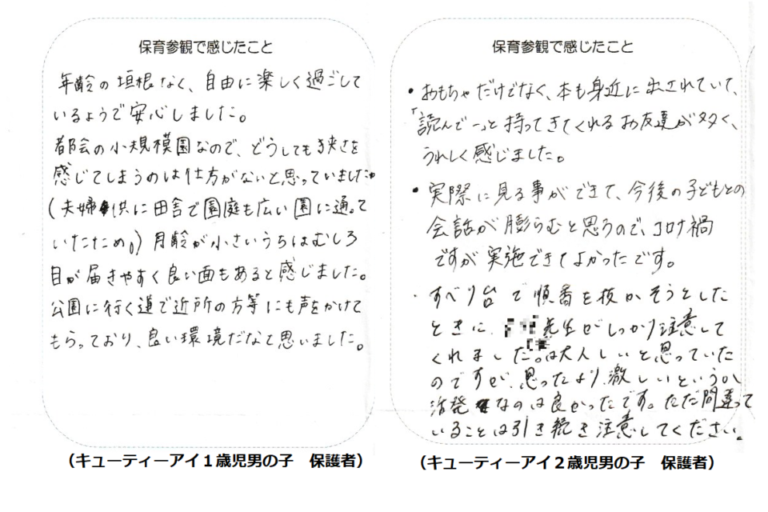 保育参観で感じたこと
年齢の垣根なく、自由に楽しく過ごして
いるようで安心しました。
都会の小規模園なので、どうしても狭さを
感じてしまうのは仕方がないと思っていました。
(夫婦供に田舎で園庭も広い園に通って
いたため。)月齢が小さいうちはむしろ
目が届きやすく良い面もあると感じました。
公園に行く道で近所の方等にも声をかけて
もらっており、良い環境だなと思いました。
(キューティーアイ1歳児男の子 保護者)
保育参観で感じたこと
・おもちゃだけでなく、本も身近に出されていて、
「読んで〜っと持ってきてくれるお友達が多く、
うれしく感じました。
・実際に見る事ができて、今後の子どもとの
会話が膨らむと思うので、コロナ禍
ですが実施できてよかったです。
・すべり台で順番を抜かそうとした
ときに、先生がしっかり注意して
くれました。は大人しいと思っていた
のですが、思ったより激しいというか
活発なのは良かったです。ただ間違って
いることは引き続き注意してください。
(キューティーアイ2歳児男の子 保護者)